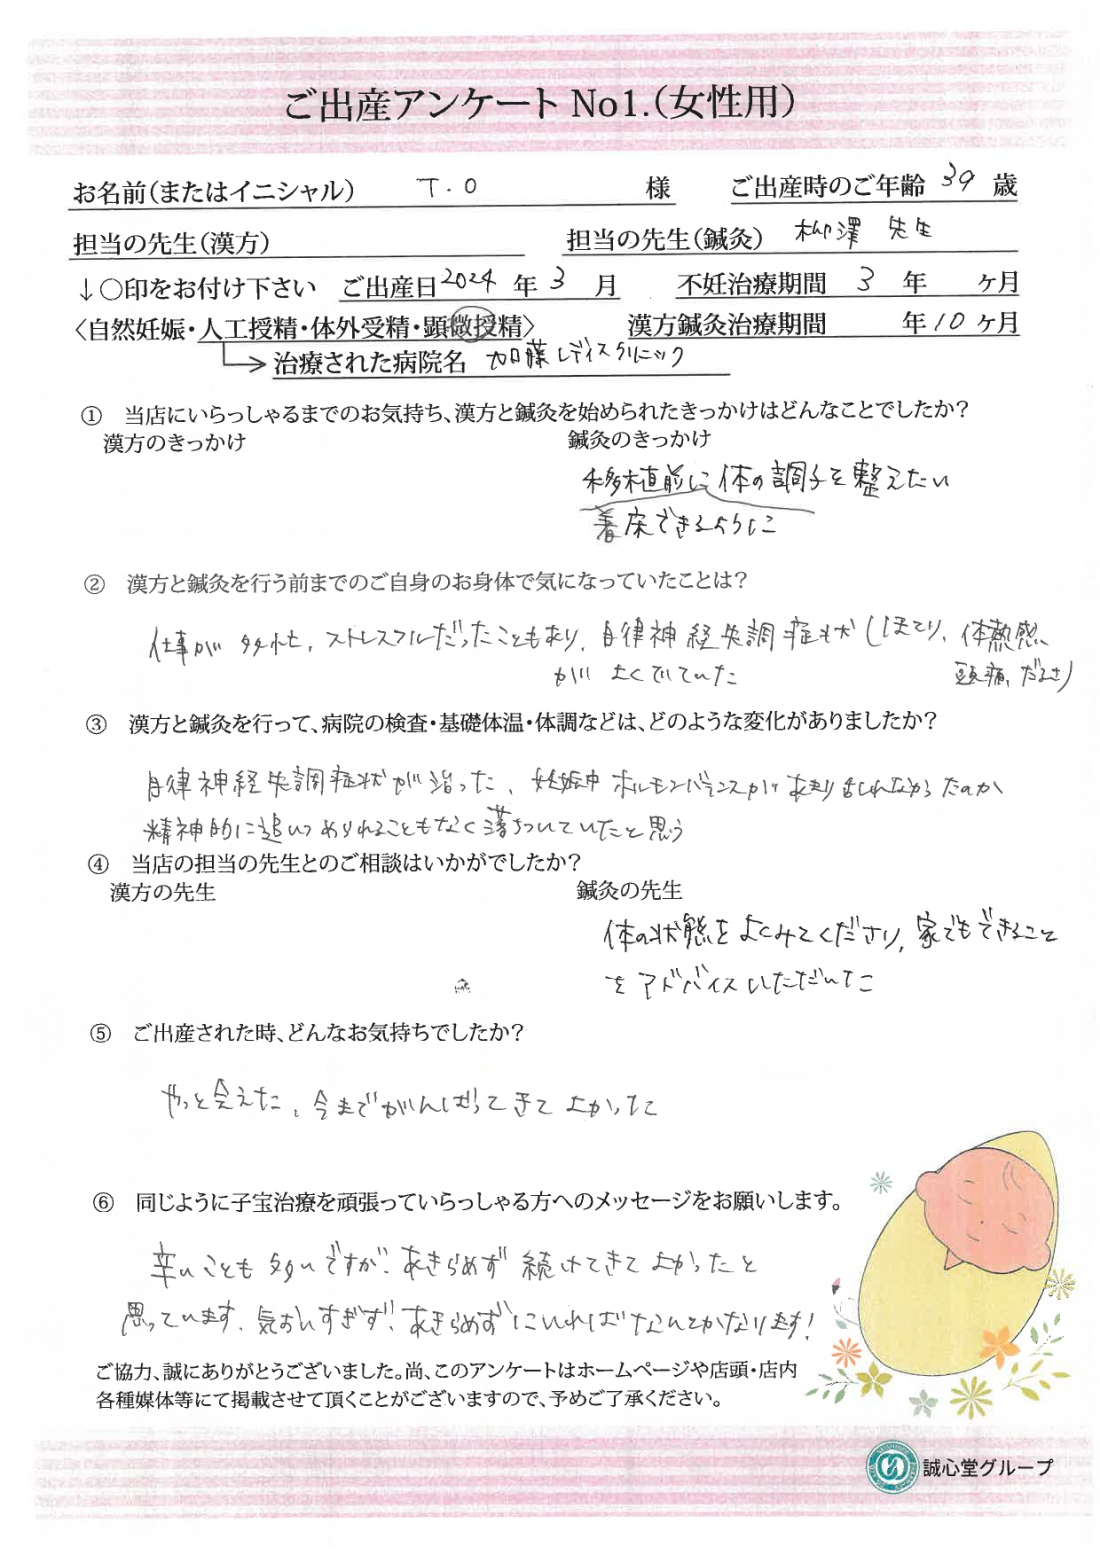 ご出産アンケート No1.（女性用）
お名前（またはイニシャル） T.O 様 ご出産時のご年齢 39 歳
担当の先生（漢方） 担当の先生（鍼灸） 柳澤 先生
↓○印をお付け下さい ご出産日 2024 年 3 月 不妊治療期間 3 年 ヶ月
〈自然妊娠・人工授精・体外受精・顕微授精〉 漢方鍼灸治療期間 年 10 ヶ月
治療された病院名 加藤レディスクリニック
① 当店にいらっしゃるまでのお気持ち、漢方と鍼灸を始められたきっかけはどんなことでしたか？
漢方のきっかけ 鍼灸のきっかけ
移植前に体の調子を整えたい
着床できるように
② 漢方と鍼灸を行う前までのご自身のお身体で気になっていたことは？
仕事が多忙で、ストレスフルだったこともあり、自律神経失調症状（ほてり、体熱感、
頭痛、だるさ）
がよくでていた
③ 漢方と鍼灸を行って、病院の検査・基礎体温・体調などは、どのような変化がありましたか？
自律神経失調症状が治った、妊娠中ホルモンバランスがあまり乱れなかったのか
精神的に追いつめられることもなく落ちついていたと思う
④ 当店の担当の先生とのご相談はいかがでしたか？
漢方の先生 鍼灸の先生
体の状態をよくみてくださり、家でもできること
をアドバイスいただいた
⑤ ご出産された時、どんなお気持ちでしたか？
やっと会えた、今までがんばってきてよかった
⑥ 同じように子宝治療を頑張っていらっしゃる方へのメッセージをお願いします。
辛いことも多いですが、あきらめず続けてきてよかったと
思っています。気おいすぎず、あきらめずにいればなんとかなります！
ご協力、誠にありがとうございました。尚、このアンケートはホームページや店頭・店内
各種媒体等にて掲載させて頂くことがございますので、予めご了承ください。
誠心堂グループ